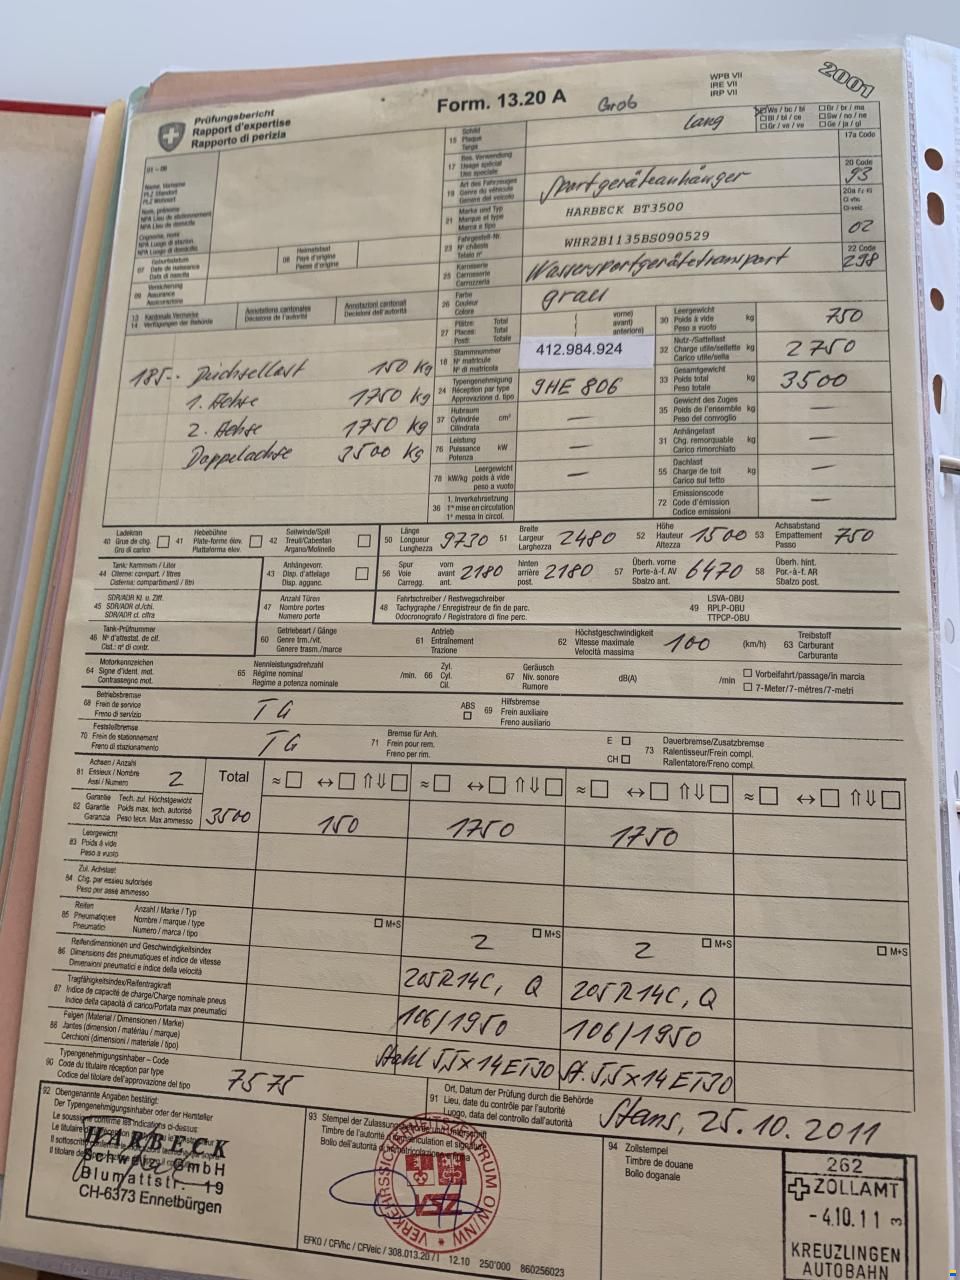 2001
Prüfungsbericht
Rapport d'expertise
Rapporto di perizia
Form. 13.20 A
WPB VII
IRE VII
IRP VII
Grob
lang
15 Schild
Plaque
Targa
Ws / bc / bi
Bl / bl / ce
Gr / va / ve
Br / br / ma
Sw / no / ne
Ge / ja / gi
17a Code
01 – 06
Name, Vorname
PLZ Standort
PLZ Wohnort
Nom, prénoms
NPA Lieu de stationnement
NPA Lieu de domicile
Cognome, nomi
NPA Luogo di stazion.
NPA Luogo di domicilio
07 Geburtsdatum
Date de naissance
Data di nascita
08 Heimatstaat
Pays d'origine
Paese d'origine
09 Versicherung
Assurance
Assicurazione
13 Kantonale Vermerke
14 Verfügungen der Behörde
Annotations cantonales
Décisions de l'autorité
Annotazioni cantonali
Decisioni dell'autorità
17 Bes. Verwendung
Usage spécial
Uso speciale
19 Art des Fahrzeuges
Genre du véhicule
Genere del veicolo
Sportgeräteanhänger
20 Code
93
21 Marke und Typ
Marque et type
Marca e tipo
HARBECK BT3500
20a
02
23 Fahrgestell-Nr.
N° châssis
Telaio n°
WHR2B1135BS090529
25 Karosserie
Carrosserie
Carrozzeria
Wassersportgerätetransport
22 Code
298
26 Farbe
Couleur
Colore
grau
27 Plätze: Total
Places: Total
Posti: Totale
( vorne)
( avant)
( anteriore)
30 Leergewicht
Poids à vide kg
Peso a vuoto
750
18 Stammnummer
N° matricule
N° di matricola
412.984.924
32 Nutz-/Sattellast
Charge utile/sellette kg
Carico utile/sella
2750
24 Typengenehmigung
Réception par type
Approvazione d. tipo
9HE 806
33 Gesamtgewicht
Poids total kg
Peso totale
3500
185.- Deichsellast 150 Kg
1. Achse 1750 Kg
2. Achse 1750 Kg
Doppelachse 3500 Kg
37 Hubraum
Cylindrée cm³
Cilindrata
—
35 Gewicht des Zuges
Poids de l'ensemble kg
Peso del convoglio
—
76 Leistung
Puissance kW
Potenza
—
31 Anhängelast
Chg. remorquable kg
Carico rimorchiato
—
78 kW/kg Leergewicht
poids à vide
peso a vuoto
—
55 Dachlast
Charge de toit kg
Carico sul tetto
—
36 1. Inverkehrsetzung
1re mise en circulation
1a messa in circol.
72 Emissionscode
Code d'émission
Codice emissioni
—
40 Ladekran
Grue de chg.
Gro di carico
41 Hebebühne
Plate-forme élev.
Piattaforma elev.
42 Seilwinde/Spill
Treuil/Cabestan
Argano/Molinello
50 Länge
Longueur
Lunghezza
9730
51 Breite
Largeur
Larghezza
2480
52 Höhe
Hauteur
Altezza
1500
53 Achsabstand
Empattement
Passo
750
44 Tank: Kammern / Liter
Citerne: compart. / litres
Cisterna: compartimenti / litri
43 Anhängevorr.
Disp. d'attelage
Disp. agganc.
56 Spur
Voie
Carregg.
vorn
avant
ant.
2180
hinten
arrière
post.
2180
57 Überh. vorne
Porte-à-f. AV
Sbalzo ant.
6470
58 Überh. hint.
Por.-à-f. AR
Sbalzo post.
45 SDR/ADR Kl. u. Ziff.
SDR/ADR cl./chi.
SDR/ADR cl. cifra
47 Anzahl Türen
Nombre portes
Numero porte
48 Fahrtschreiber / Restwegschreiber
Tachygraphe / Enregistreur de fin de parc.
Odocronografo / Registratore di fine perc.
49 LSVA-OBU
RPLP-OBU
TTPCP-OBU
46 Tank-Prüfnummer
N° d'attestat. de cit.
Cist.: n° di contr.
60 Getriebeart / Gänge
Genre trm./vit.
Genere trasm./marce
61 Antrieb
Entraînement
Trazione
62 Höchstgeschwindigkeit
Vitesse maximale
Velocità massima
100 (km/h)
63 Treibstoff
Carburant
Carburante
64 Motorkennzeichen
Signe d'ident. mot.
Contrassegno mot.
65 Nennleistungsdrehzahl
Régime nominal
Regime a potenza nominale
/min.
66 Zyl.
Cyl.
Cil.
67 Geräusch
Niv. sonore
Rumore
dB(A)
/min
Vorbeifahrt/passage/in marcia
7-Meter/7-mètres/7-metri
68 Betriebsbremse
Frein de service
Freno di servizio
TG
ABS
69 Hilfsbremse
Frein auxiliaire
Freno ausiliario
70 Feststellbremse
Frein de stationnement
Freno di stazionamento
TG
71 Bremse für Anh.
Frein pour rem.
Freno per rim.
E
CH
73 Dauerbremse/Zusatzbremse
Ralentisseur/Frein compl.
Rallentatore/Freno compl.
81 Achsen / Anzahl
Essieux / Nombre
Assi / Numero
2
Total
≈ ↔ ⇑⇓ ≈ ↔ ⇑⇓ ≈ ↔ ⇑⇓ ≈ ↔ ⇑⇓
82 Garantie Tech. zul. Höchstgewicht
Garantie Poids max. tech. autorisé
Garanzia Peso tecn. Max ammesso
3500 150 1750 1750
83 Leergewicht
Poids à vide
Peso a vuoto
84 Zul. Achslast
Chg. par essieu autorisée
Peso per asse ammesso
85 Reifen Anzahl / Marke / Typ
Pneumatiques Nombre / marque / type
Pneumatici Numero / marca / tipo
M+S 2 M+S 2 M+S M+S
86 Reifendimensionen und Geschwindigkeitsindex
Dimensions des pneumatiques et indice de vitesse
Dimensioni pneumatici e indice della velocità
205 R14C, Q 205 R14C, Q
87 Tragfähigkeitsindex/Reifentragkraft
Indice de capacité de charge/Charge nominale pneus
Indice della capacità di carico/Portata max pneumatici
106/1950 106/1950
88 Felgen (Material / Dimensionen / Marke)
Jantes (dimension / matériau / marque)
Cerchioni (dimensioni / materiale / tipo)
Stahl 5,5x14 ET30 St. 5,5x14 ET30
90 Typengenehmigungsinhaber – Code
Code du titulaire réception par type
Codice del titolare dell'approvazione del tipo
7575
91 Ort, Datum der Prüfung durch die Behörde
Lieu, date du contrôle par l'autorité
Luogo, data del controllo dall'autorità
Stans, 25.10.2011
92 Obengenannte Angaben bestätigt:
Der Typengenehmigungsinhaber oder der Hersteller
HARBECK
Schweiz GmbH
Blumattstr. 19
CH-6373 Ennetbürgen
93 Stempel der Zulassungsbehörde
VERKEHRSSICHERHEITSZENTRUM OW/NW
VSZ
94 Zollstempel
Timbre de douane
Bollo doganale
262
ZOLLAMT
-4.10.11 3
KREUZLINGEN
AUTOBAHN
EFKO / CFVhc / CFVeic / 308.013.20/1 12.10 250'000 860256023